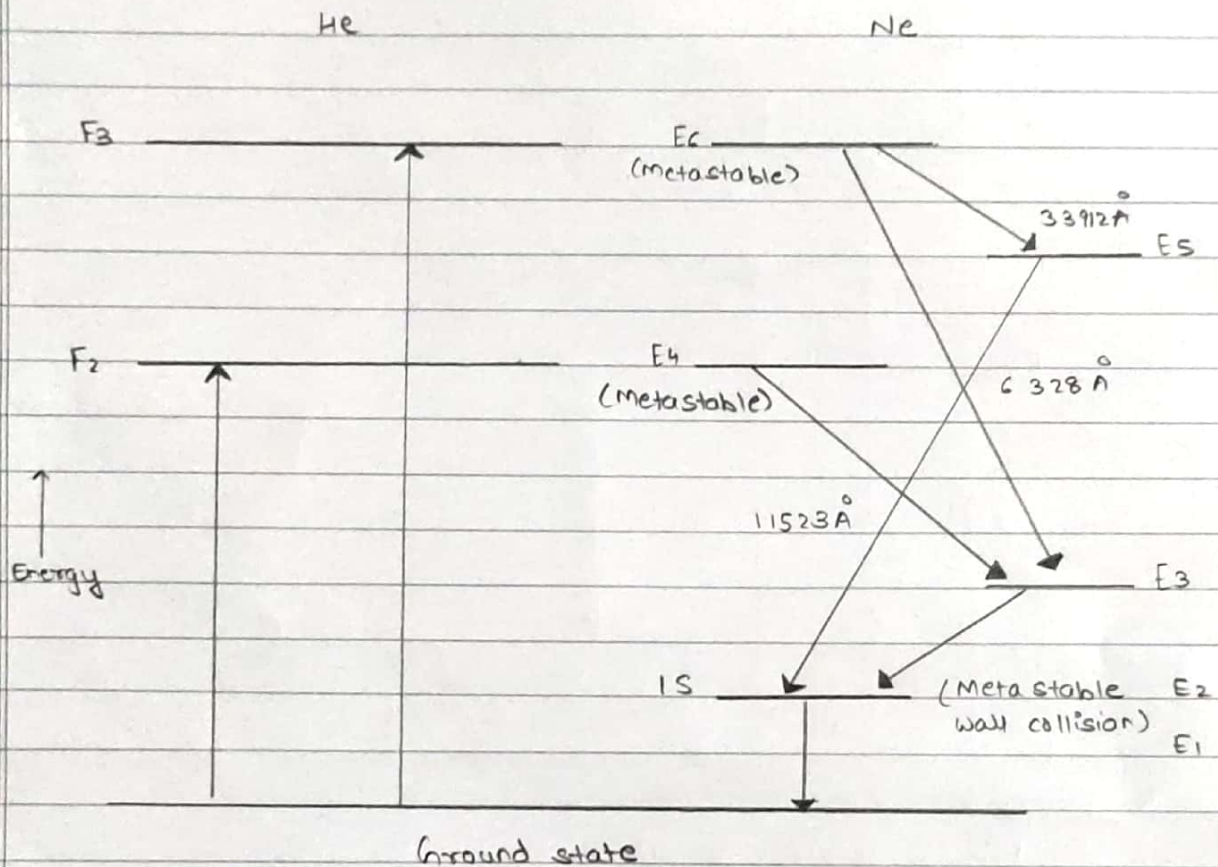 He Ne
F3 E6
(Metastable)
33912Å
E5
F2 E4
(Metastable)
6328Å
11523Å
Energy
E3
1S (Metastable E2
wall collision)
E1
Ground state